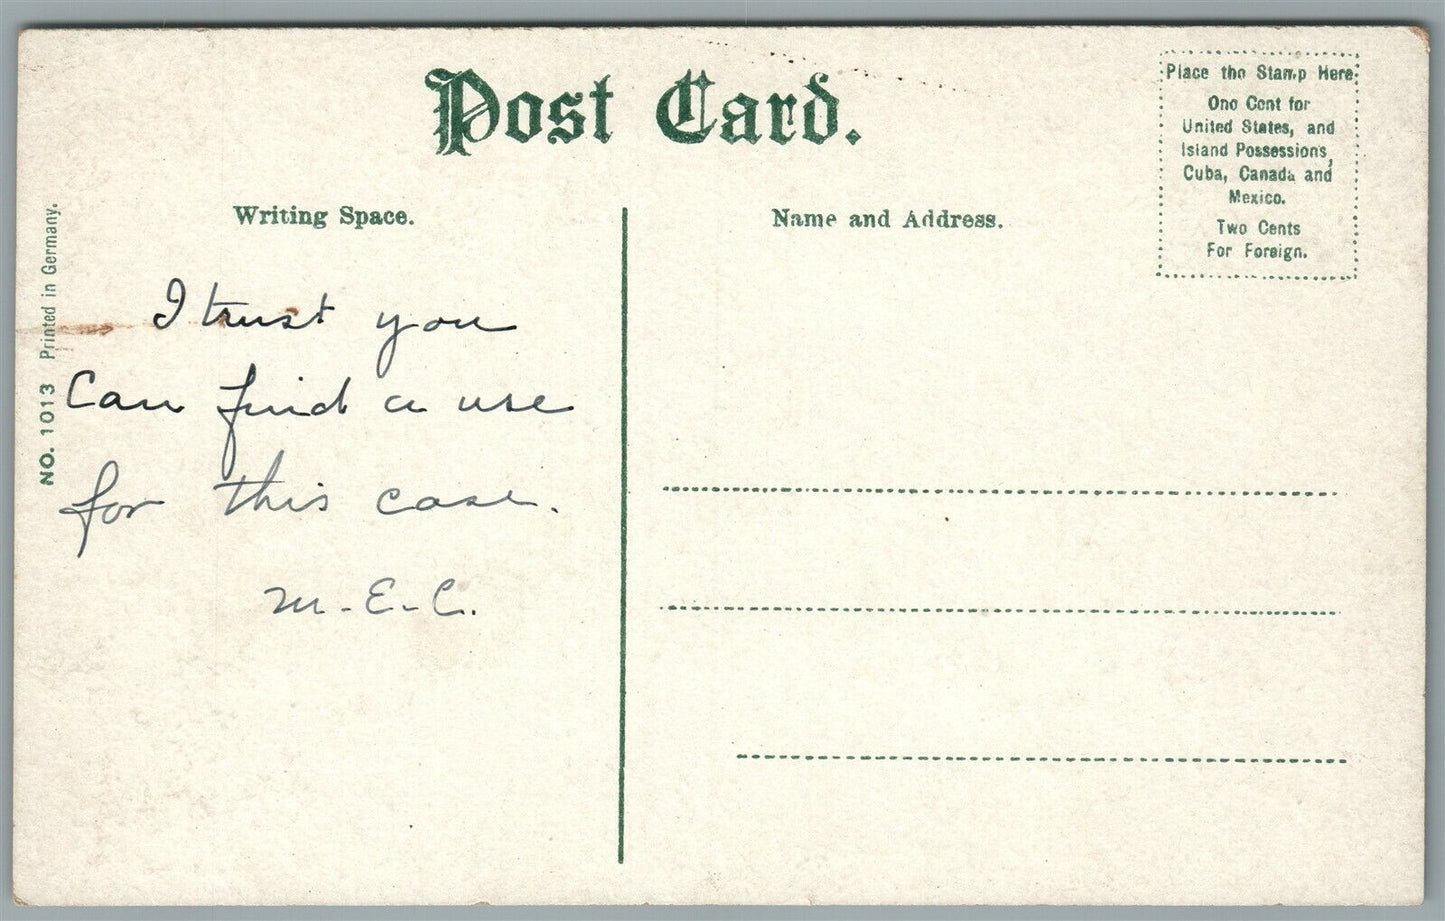 Post Card.
Place the Stamp Here
One Cent for
United States, and
Island Possessions,
Cuba, Canada and
Mexico.
Two Cents
For Foreign.
Writing Space.
Name and Address.
NO. 1013 Printed in Germany.
I trust you
Can find a use
for this case.
M-E-C.